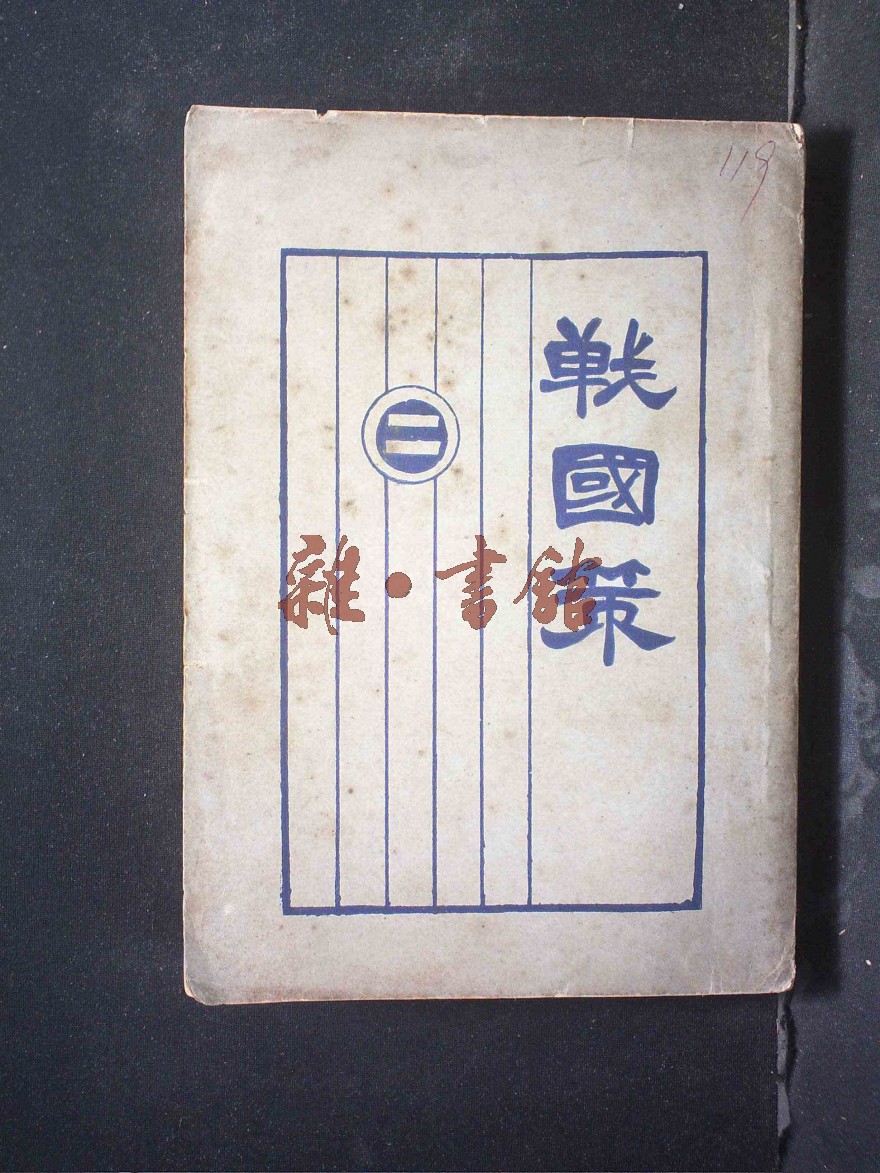 118
戰國策
二
雜·書館